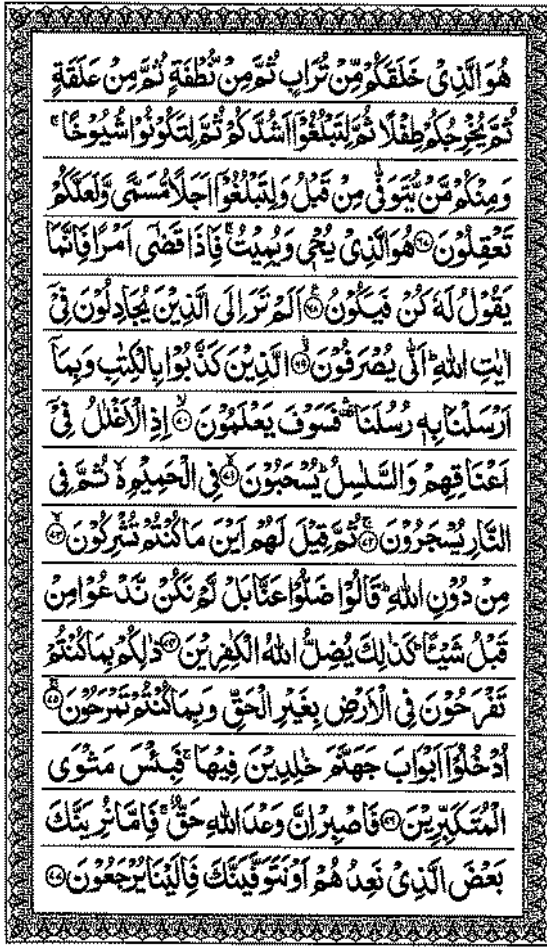 هُوَ الَّذِىْ خَلَقَكُمْ مِّنْ تُرَابٍ ثُمَّ مِنْ نُّطْفَةٍ ثُمَّ مِنْ عَلَقَةٍ
ثُمَّ يُخْرِجُكُمْ طِفْلًا ثُمَّ لِتَبْلُغُوْٓا اَشُدَّكُمْ ثُمَّ لِتَكُوْنُوْا شُيُوْخًا ۚ
وَمِنْكُمْ مَّنْ يُّتَوَفّٰى مِنْ قَبْلُ وَلِتَبْلُغُوْٓا اَجَلًا مُّسَمًّى وَّلَعَلَّكُمْ
تَعْقِلُوْنَ ﴿۶۷﴾ هُوَ الَّذِىْ يُحْىٖ وَيُمِيْتُ ۚ فَاِذَا قَضٰٓى اَمْرًا فَاِنَّمَا
يَقُوْلُ لَهٗ كُنْ فَيَكُوْنُ ﴿۶۸﴾ اَلَمْ تَرَ اِلَى الَّذِيْنَ يُجَادِلُوْنَ فِىْٓ
اٰيٰتِ اللّٰهِ ؕ اَنّٰى يُصْرَفُوْنَ ﴿۶۹﴾ الَّذِيْنَ كَذَّبُوْا بِالْكِتٰبِ وَبِمَآ
اَرْسَلْنَا بِهٖ رُسُلَنَا ۛ فَسَوْفَ يَعْلَمُوْنَ ﴿۷۰﴾ اِذِ الْاَغْلٰلُ فِىْٓ
اَعْنَاقِهِمْ وَالسَّلٰسِلُ ؕ يُسْحَبُوْنَ ﴿۷۱﴾ فِى الْحَمِيْمِ ۙ ثُمَّ فِى
النَّارِ يُسْجَرُوْنَ ﴿۷۲﴾ ثُمَّ قِيْلَ لَهُمْ اَيْنَ مَا كُنْتُمْ تُشْرِكُوْنَ ﴿۷۳﴾
مِنْ دُوْنِ اللّٰهِ ؕ قَالُوْا ضَلُّوْا عَنَّا بَلْ لَّمْ نَكُنْ نَّدْعُوْا مِنْ
قَبْلُ شَيْـًٔا ؕ كَذٰلِكَ يُضِلُّ اللّٰهُ الْكٰفِرِيْنَ ﴿۷۴﴾ ذٰلِكُمْ بِمَا كُنْتُمْ
تَفْرَحُوْنَ فِى الْاَرْضِ بِغَيْرِ الْحَقِّ وَبِمَا كُنْتُمْ تَمْرَحُوْنَ ﴿۷۵﴾
اُدْخُلُوْٓا اَبْوَابَ جَهَنَّمَ خٰلِدِيْنَ فِيْهَا ۚ فَبِئْسَ مَثْوَى
الْمُتَكَبِّرِيْنَ ﴿۷۶﴾ فَاصْبِرْ اِنَّ وَعْدَ اللّٰهِ حَقٌّ ۚ فَاِمَّا نُرِيَنَّكَ
بَعْضَ الَّذِىْ نَعِدُهُمْ اَوْ نَتَوَفَّيَنَّكَ فَاِلَيْنَا يُرْجَعُوْنَ ﴿۷۷﴾